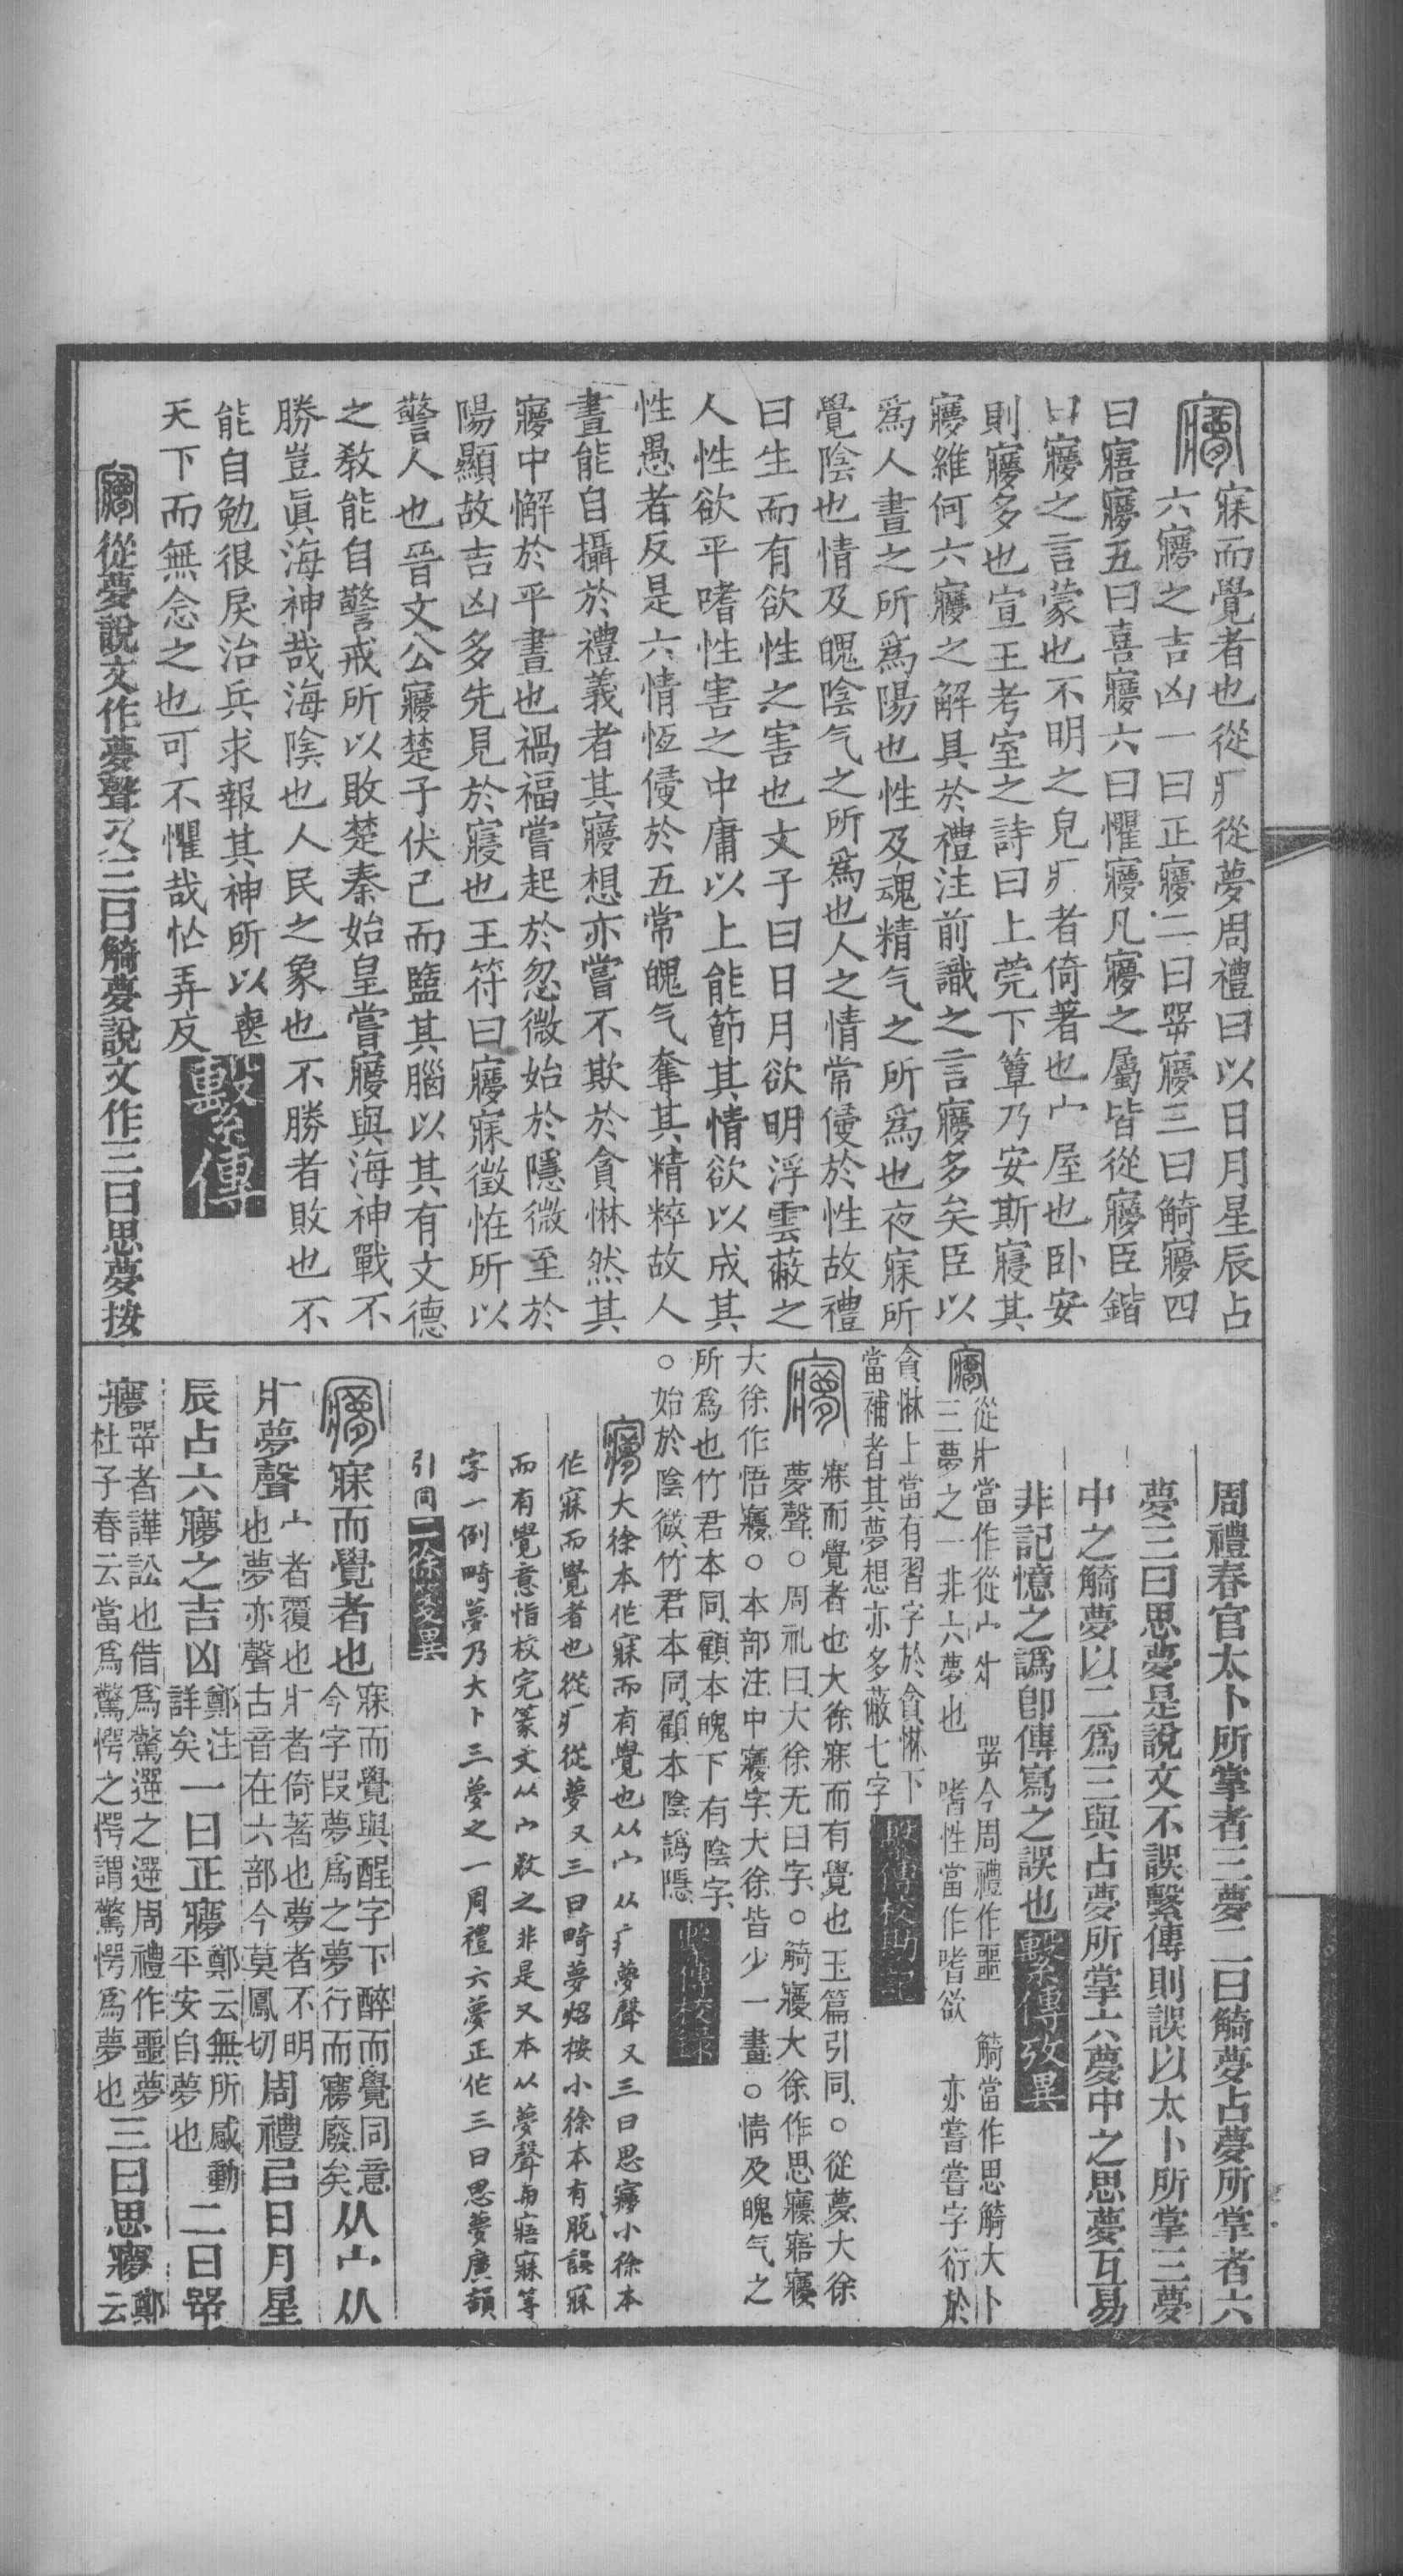 㝱寐而覺者也從爿從夢周禮曰以日月星辰占
六㝱之吉凶一曰正㝱二曰㖾㝱三曰觭㝱四
曰寤㝱五曰喜㝱六曰懼㝱凡㝱之屬皆從㝱臣鍇
曰㝱之言蒙也不明之皃爿者倚著也宀屋也卧安
則㝱多也宣王考室之詩曰上莞下簟乃安斯寢其
㝱維何六㝱之解具於禮注前識之言㝱多矣臣以
爲人晝之所爲陽也性及魂精气之所爲也夜寐所
覺陰也情及魄陰气之所爲也人之情常侵於性故禮
曰生而有欲性之害也文子曰日月欲明浮雲蔽之
人性欲平嗜性害之中庸以上能節其情欲以成其
性愚者反是六情恆侵於五常魄气奪其精粹故人
晝能自攝於禮義者其㝱想亦嘗不欺於貪惏然其
㝱中懈於平晝也禍福嘗起於忽微始於隱微至於
陽顯故吉凶多先見於寢也王符曰㝱寐徵怪所以
警人也晉文公㝱楚子伏己而盬其腦以其有文德
之教能自警戒所以敗楚秦始皇嘗㝱與海神戰不
勝豈眞海神哉海陰也人民之象也不勝者敗也不
能自勉很戾治兵求報其神所以喪
天下而無念之也可不懼哉忙弄反 繫傳
㝱從夢說文作夢聲又三曰觭夢說文作三曰思夢按
周禮春官太卜所掌者三夢二曰觭夢占夢所掌者六
夢三曰思夢是說文不誤繫傳則誤以太卜所掌三夢
中之觭夢以二爲三與占夢所掌六夢中之思夢互易
非記憶之譌卽傳寫之誤也 繫傳攷異
㝱從爿當作從宀爿 㖾今周禮作噩 觭當作思觭大卜
三夢之一非六夢也 嗜性當作嗜欲 亦嘗嘗字衍於
貪惏上當有習字於貪惏下
當補者其夢想亦多蔽七字 繫傳校勘記
㝱寐而覺者也大徐寐而有覺也玉篇引同○從夢大徐
夢聲○周礼曰大徐无曰字○觭㝱大徐作思㝱寤㝱
大徐作悟㝱○本部注中㝱字大徐皆少一畫○情及魄气之
所爲也竹君本同顧本魄下有陰字
○始於陰微竹君本同顧本陰譌隱 繫傳校錄
㝱大徐本作寐而有覺也从宀从疒夢聲又三曰思㝱小徐本
作寐而覺者也從爿從夢又三曰畸夢炤按小徐本有脫誤寐
而有覺意恉校完篆文从宀敘之非是又本从夢聲與寤寐等
字一例畸夢乃大卜三夢之一周禮六夢正作三曰思夢廣韻
引同 二徐箋異
㝱寐而覺者也寐而覺與醒字下醉而覺同意今字叚夢爲之夢行而㝱廢矣从宀从
爿夢聲宀者覆也爿者倚著也夢者不明也夢亦聲古音在六部今莫鳳切周禮㠯日月星
辰占六㝱之吉凶鄭注詳矣一曰正㝱鄭云無所感動平安自夢也二曰㖾
㝱㖾者譁訟也借爲驚遻之遻周禮作噩夢杜子春云當爲驚愕之愕謂驚愕爲夢也三曰思㝱鄭云